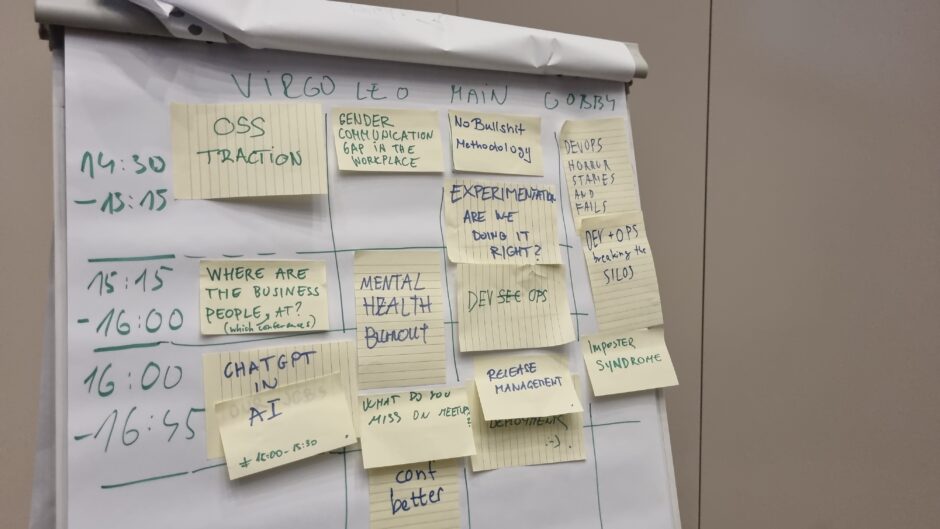 VIRGO LEO MAIN GOBBY
14:30
-15:15
OSS
TRACTION
GENDER
COMMUNICATION
GAP IN THE
WORKPLACE
No Bullshit
Methodology
EXPERIMENTATION
ARE WE
DOING IT
RIGHT?
DEVOPS
HORROR
STARIES
AND
FAILS
15:15
-16:00
WHERE ARE
THE BUSINESS
PEOPLE, AT?
(which conferences)
MENTAL
HEALTH
BURNOUT
DEV SEC OPS
DEV + OPS
breaking the
SILOS
16:00
-16:45
CHATGPT
IN
JOBS
AI
WHAT DO YOU
MISS ON MEETUPS?
conf
better
RELEASE
MANAGEMENT
:-)
IMPOSTER
SYNDROME